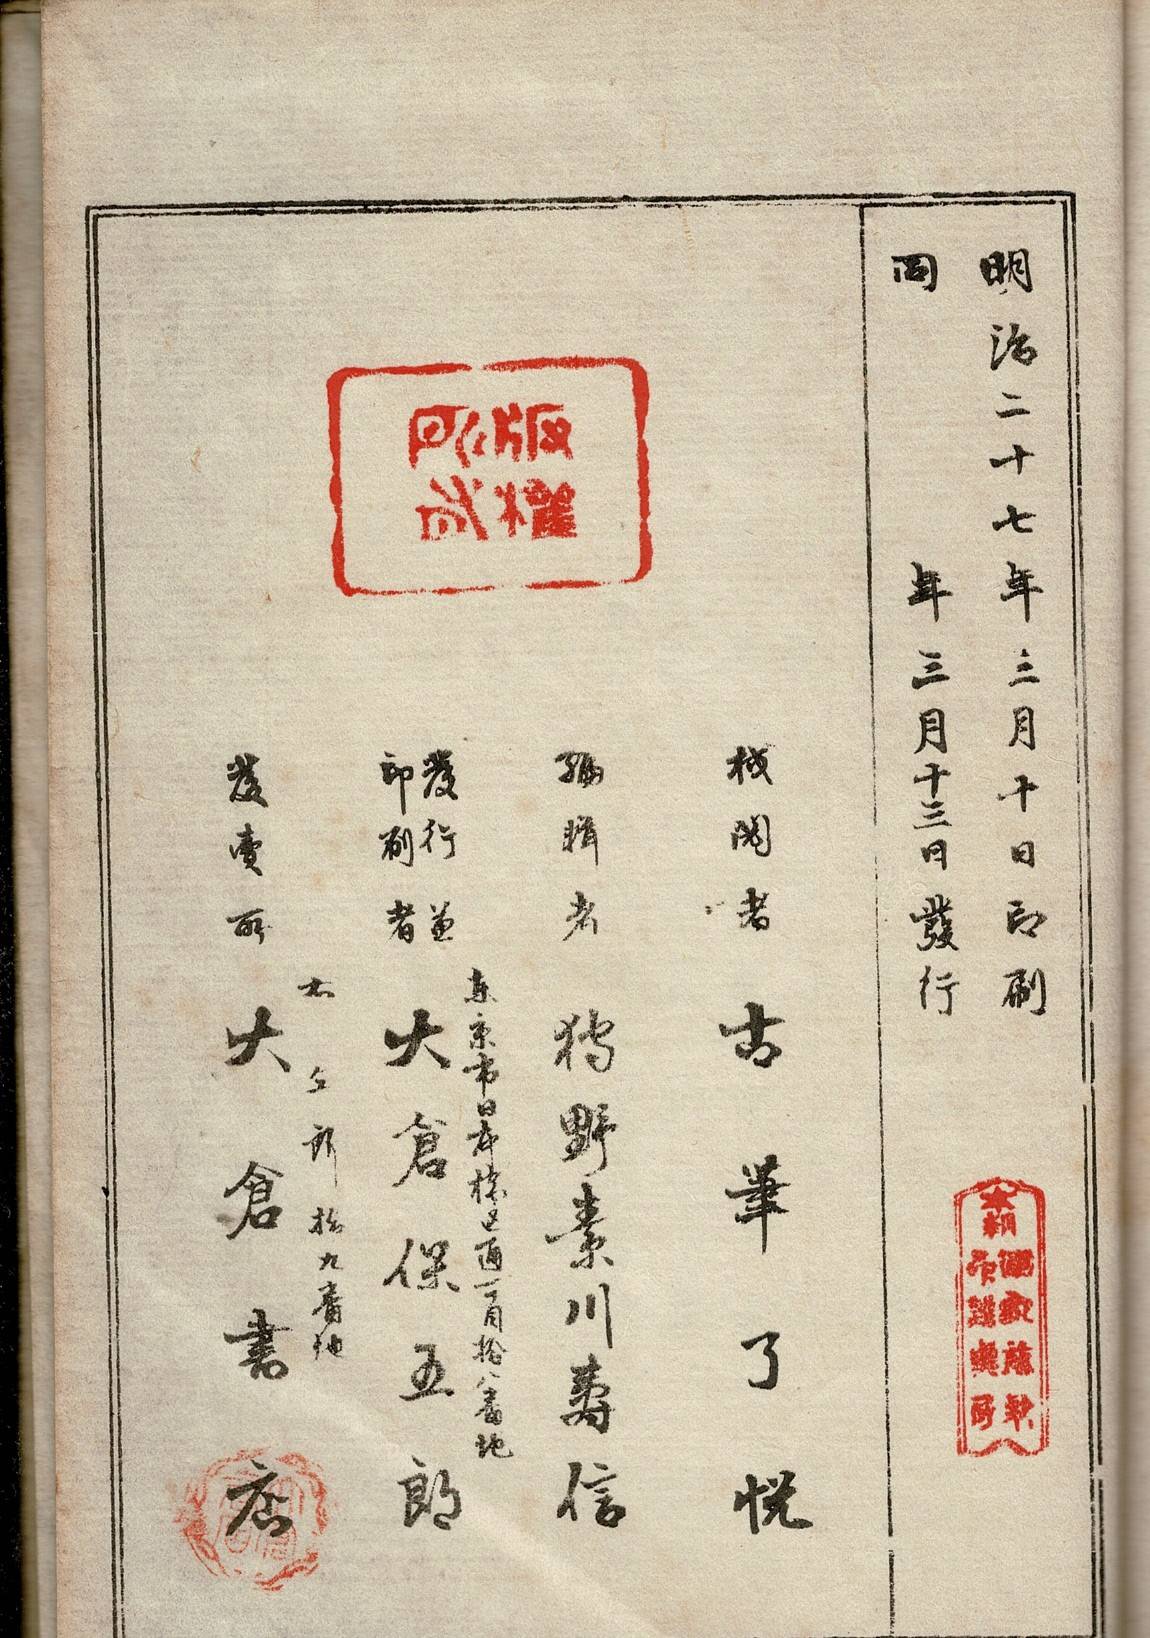 明治二十七年三月十日印刷
同年三月十三日發行
版權所有
校閲者 古筆了悦
編輯者 狩野素川壽信
東京市日本橋區通一丁目拾八番地
發行兼印刷者 大倉保五郎
仝 仝 所拾九番地
發賣所 大倉書店